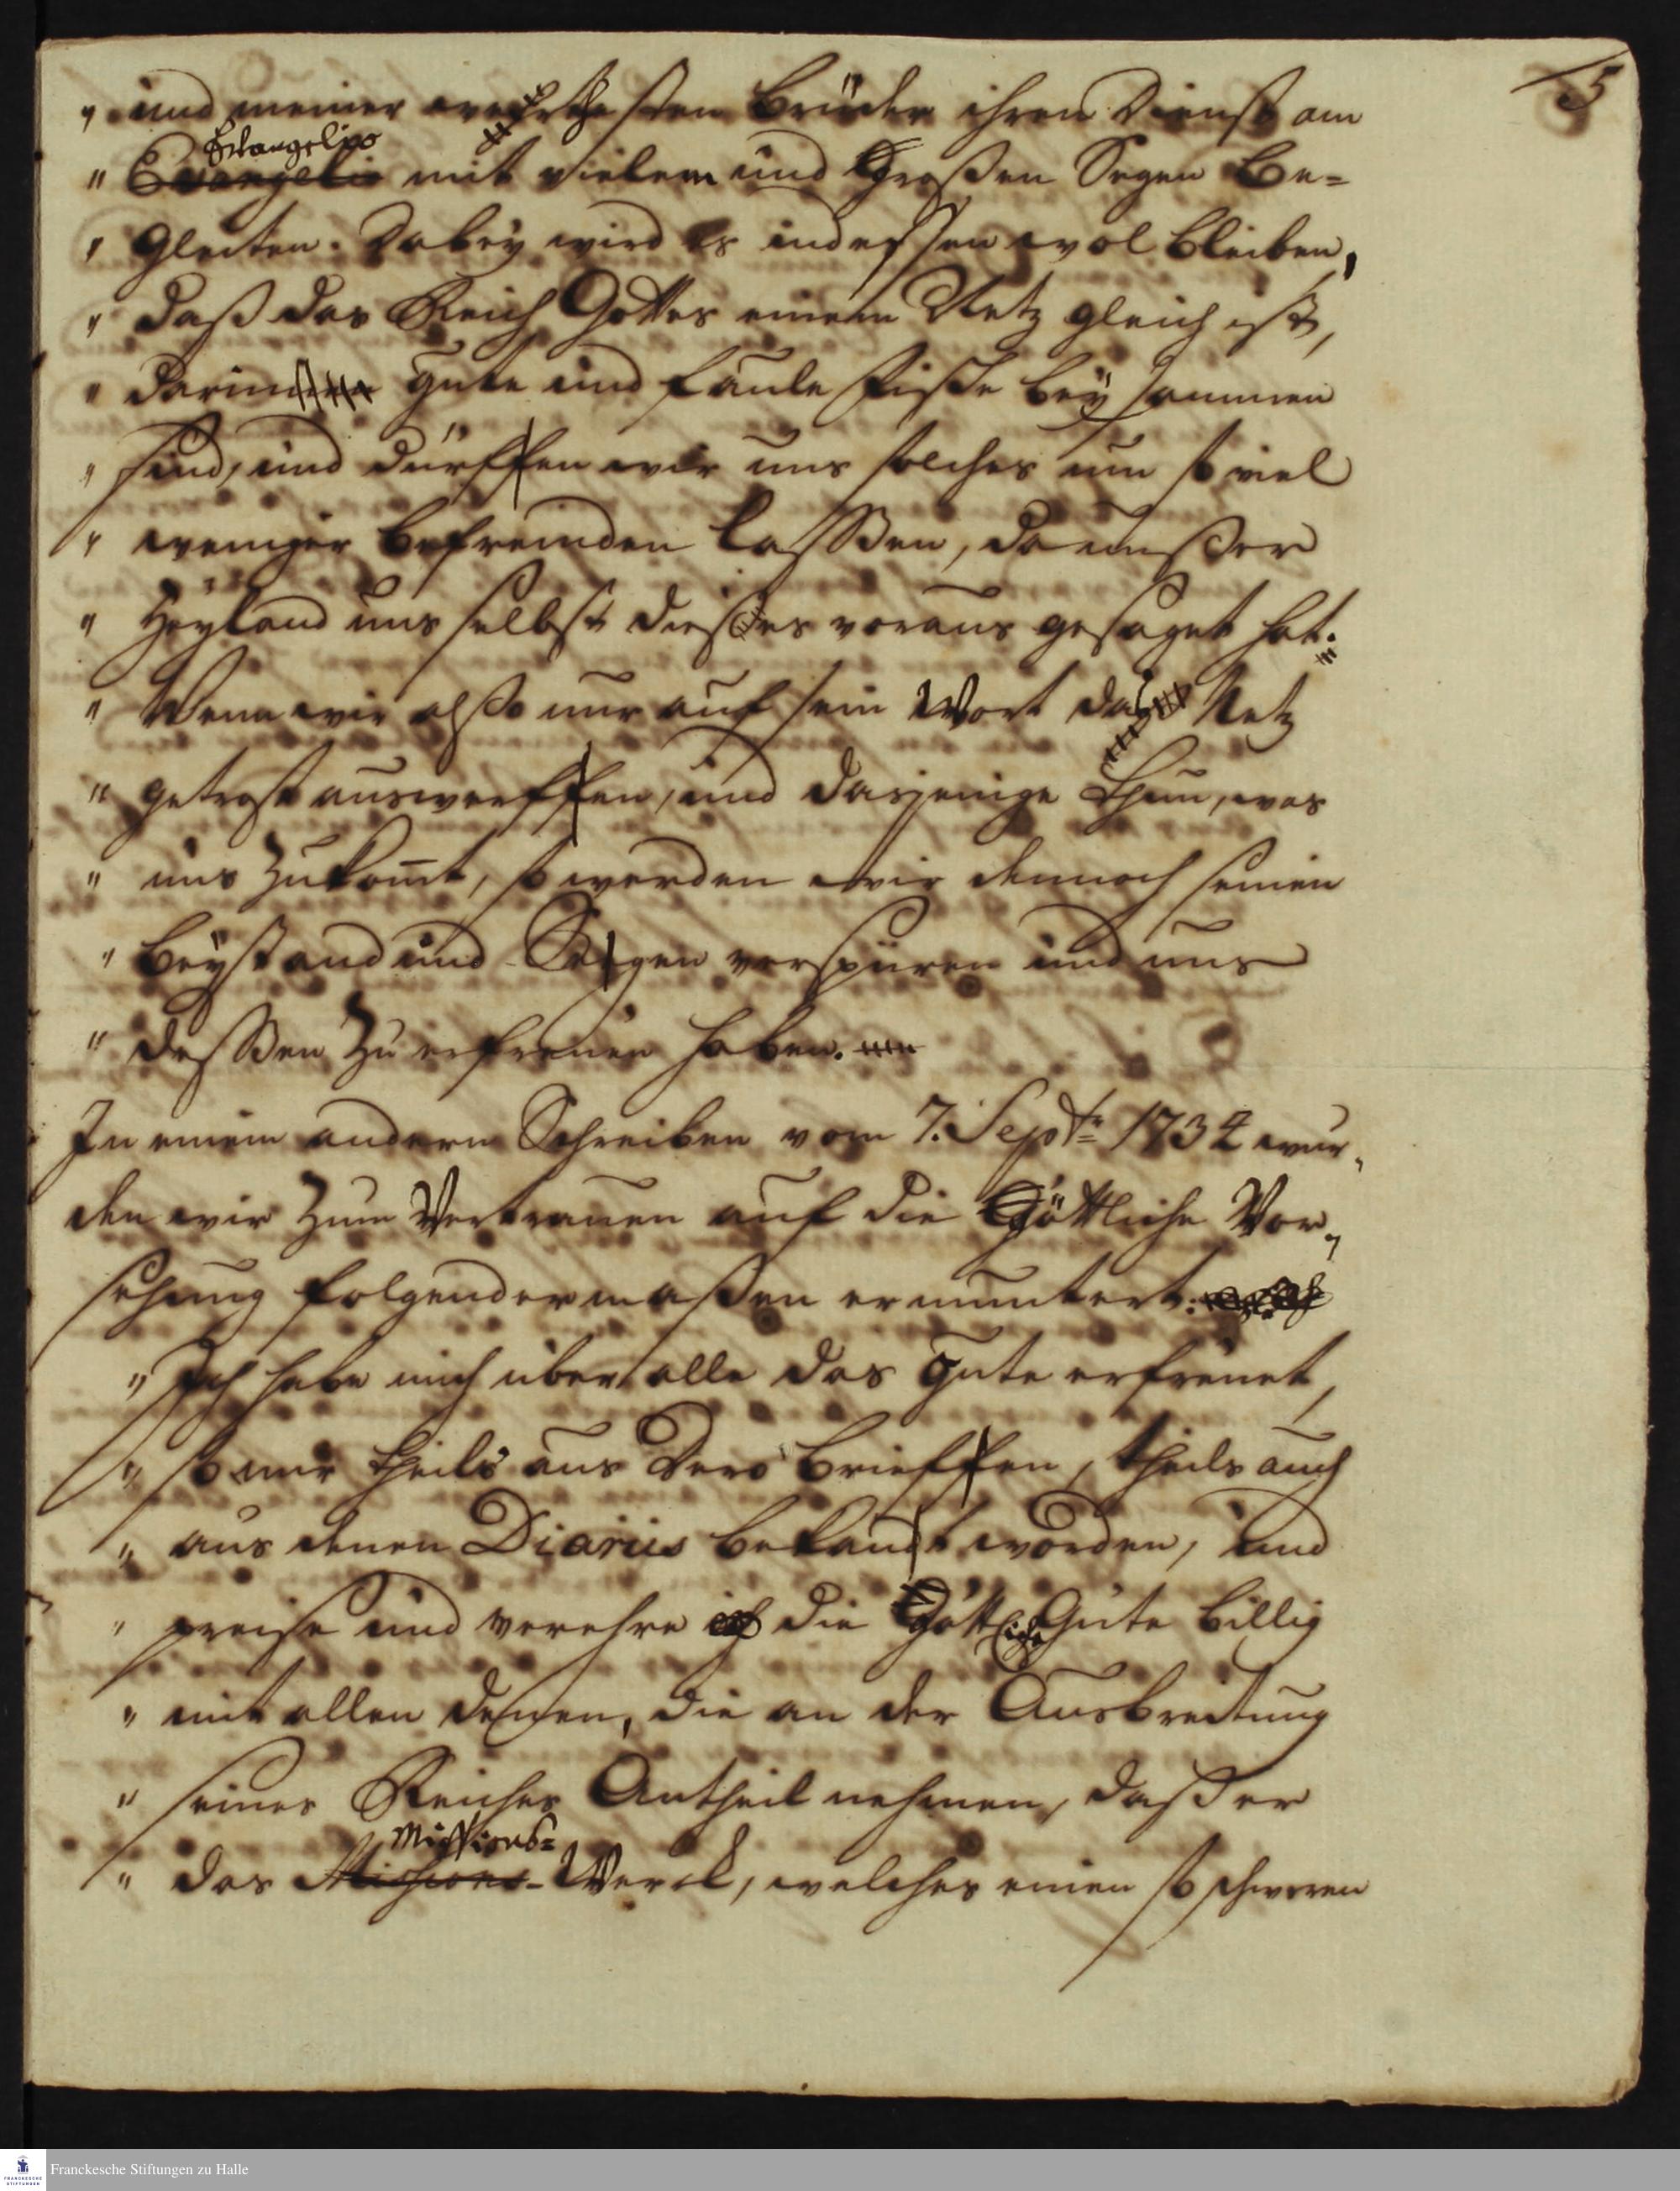 5
" und meiner werthesten Brüder ihren Dienst am
Evangelio
" Evangelio mit vielem und Großen Segen be=
" Gleiten. Dabey wird es indessen wol bleiben,
" daß das Reich Gottes einem Netz gleich ist,
" darin gute und faule Fische beysammen
" sind, und dürffen wir uns solches um so viel
" weniger befremden lassen, da unser
" Heyland uns selbst dieses voraus gesaget hat.
" Wenn wir also nur auf sein Wort das Netz
" getrost auswerffen, und dasjenige thun, was
" uns zukomt, so werden wir dennoch seinen
" Beystand und Segen verspüren und uns
" dessen zu erfreuen haben.
In einem andern Schreiben vom 7. Septr 1734 wur„
den wir zum Vertrauen auf die Göttliche Vor„
sehung folgendermaßen ermuntert:
" Ich habe mich über alle das Gute erfreuet,
" so mir theils aus Dero Brieffen, theils auch
" aus denen Diariis bekandt worden, und
" preise und verehre ich die Göttliche Güte billig
" mit allen denen, die an der Ausbreitung
" seines Reiches Antheil nehmen, daß er
Missions=
" das Missions-Werck, welches einen so schweren
Franckesche Stiftungen zu Halle